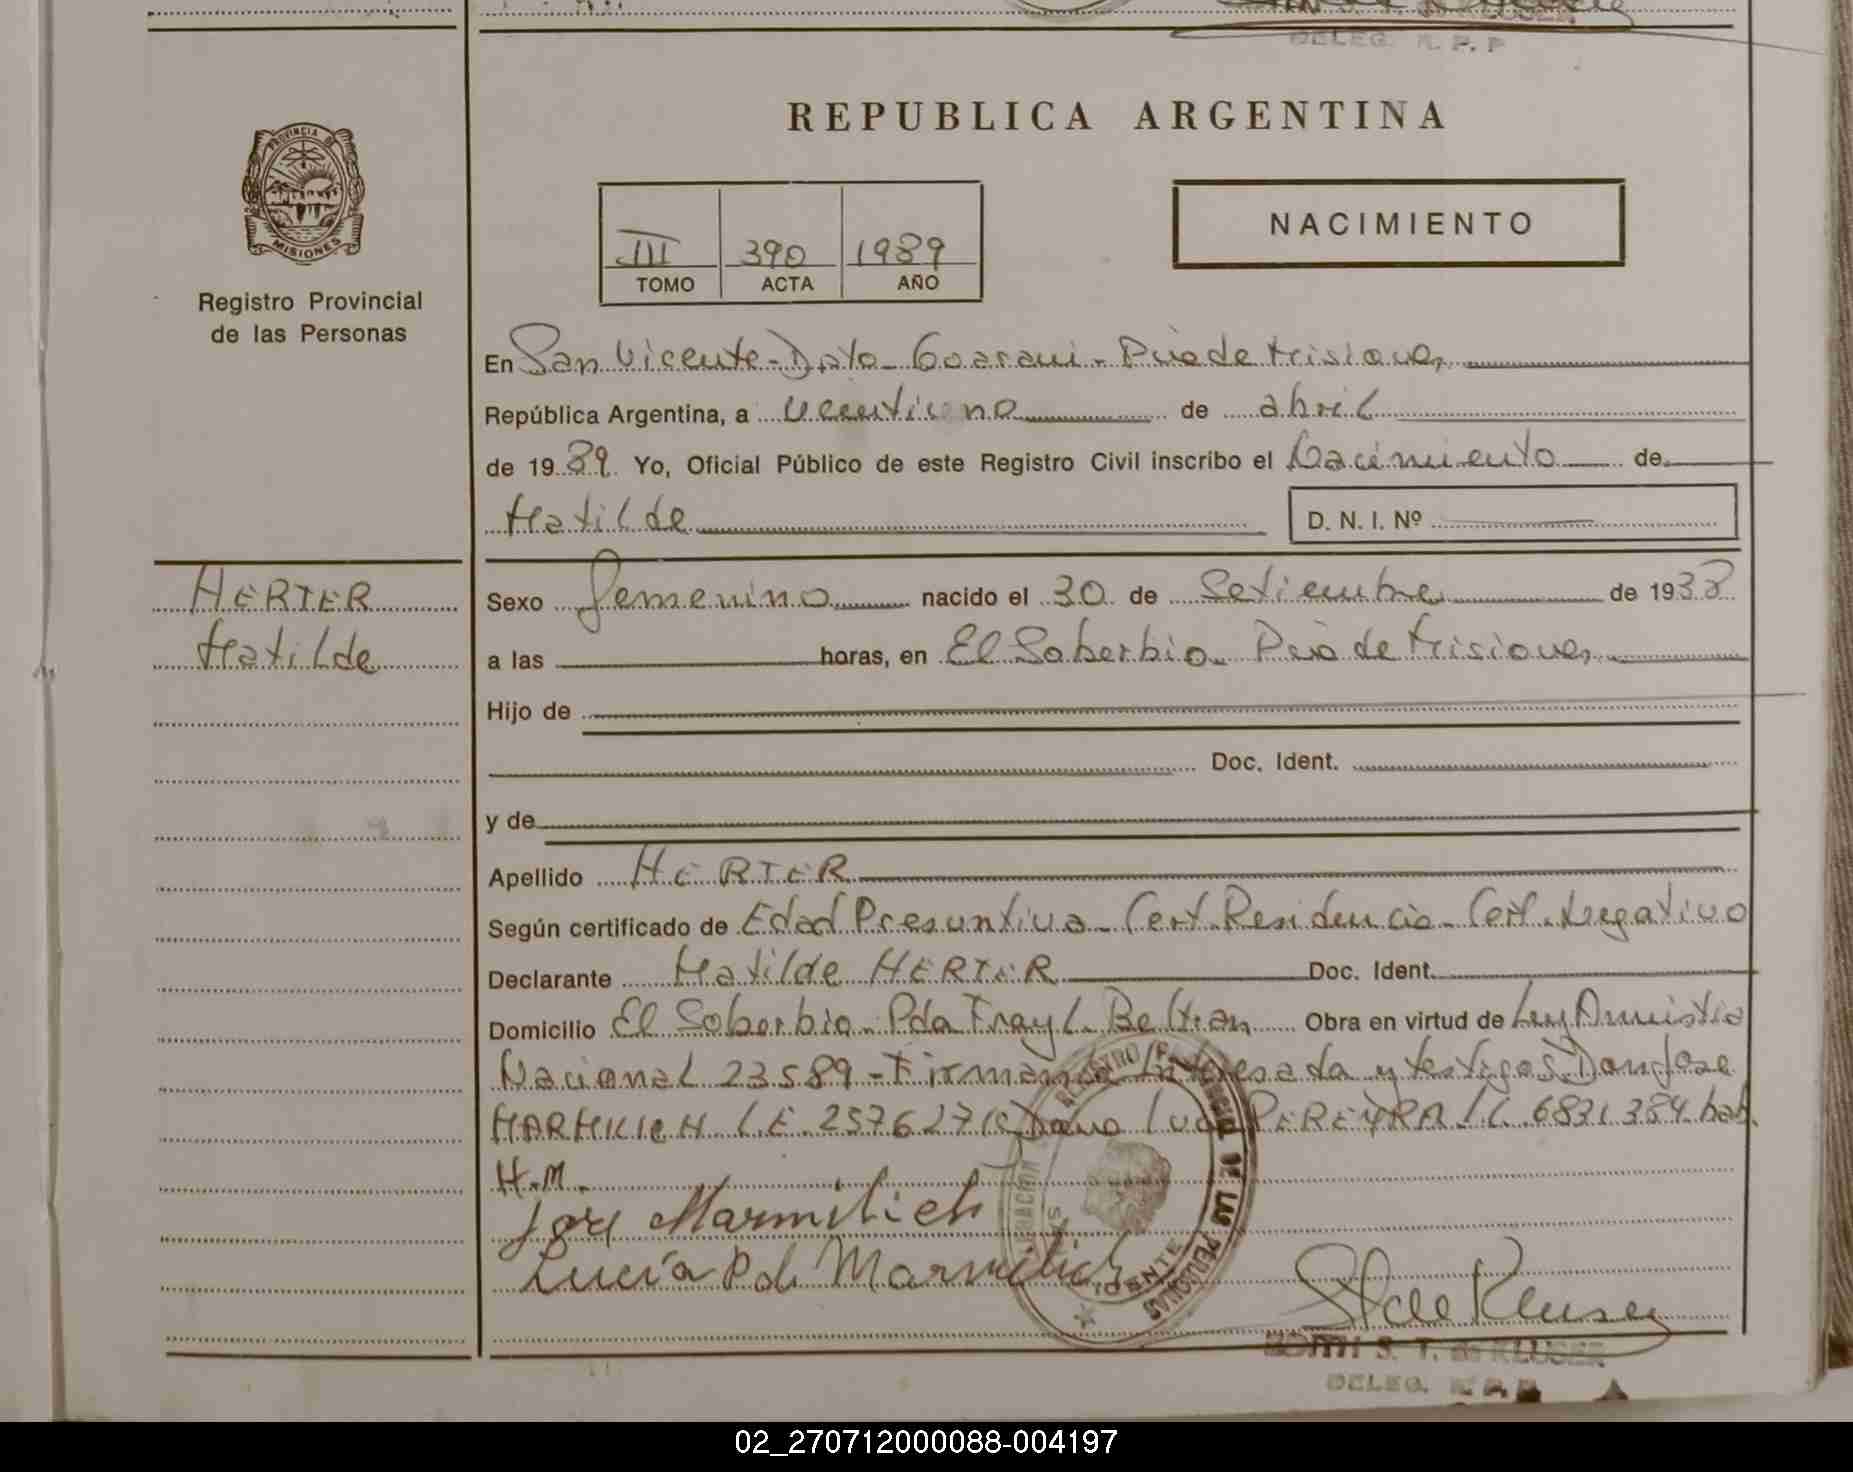 DELEG. R. P. P
PROVINCIA DE
MISIONES
Registro Provincial
de las Personas
REPUBLICA ARGENTINA
III 390 1989
TOMO ACTA AÑO
NACIMIENTO
En San Vicente - Dpto. Guarani - Pcia de Misiones
República Argentina, a veintiuno de abril
de 1989 Yo, Oficial Público de este Registro Civil inscribo el Nacimiento de
Matilde D. N. I. Nº
HERTER
Matilde
Sexo femenino nacido el 30 de Setiembre de 1933
a las horas, en El Soberbio - Pcia de Misiones
Hijo de
Doc. Ident.
y de
Apellido HERTER
Según certificado de Edad Presuntiva - Cert. Residencia - Cert. Negativo
Declarante Matilde HERTER Doc. Ident.
Domicilio El Soberbio - Pda Fray L. Beltran Obra en virtud de Ley Amnistia
Nacional 23589 - Firmando Interesada y testigos Don Jose
MARMILICH L.E. 2576271 Doña Lucia PEREYRA L.C. 6831384 hab.
H.M.
Jose Marmilich
Lucía P de Marmilich
EDITH S. T. de KLUSER
DELEG. R. P. P.
02_270712000088-004197